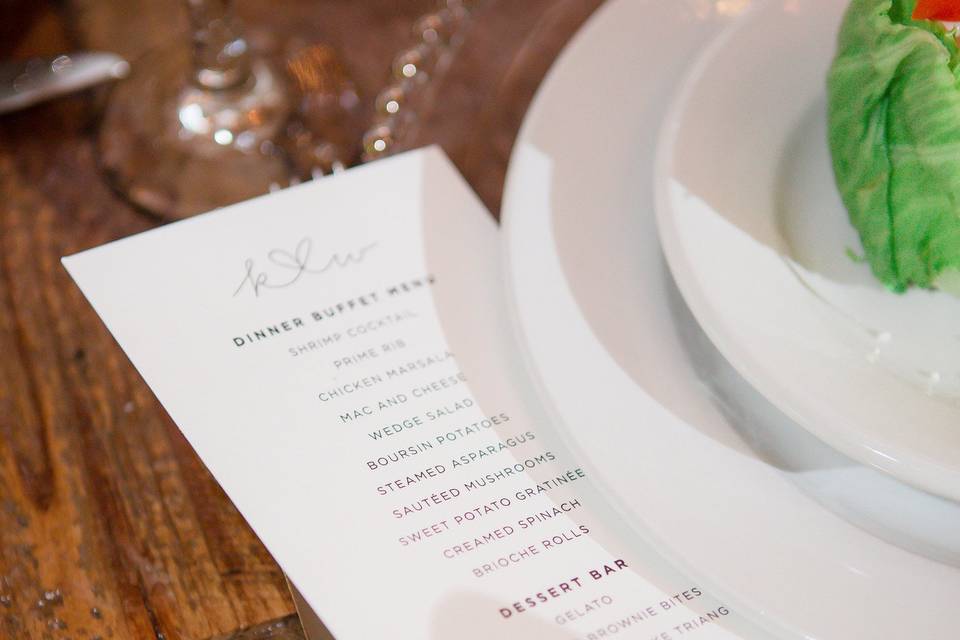 k w
DINNER BUFFET MENU
SHRIMP COCKTAIL
PRIME RIB
CHICKEN MARSALA
MAC AND CHEESE
WEDGE SALAD
BOURSIN POTATOES
STEAMED ASPARAGUS
SAUTÉED MUSHROOMS
SWEET POTATO GRATINÉE
CREAMED SPINACH
BRIOCHE ROLLS
DESSERT BAR
GELATO
BROWNIE BITES
TRIANG